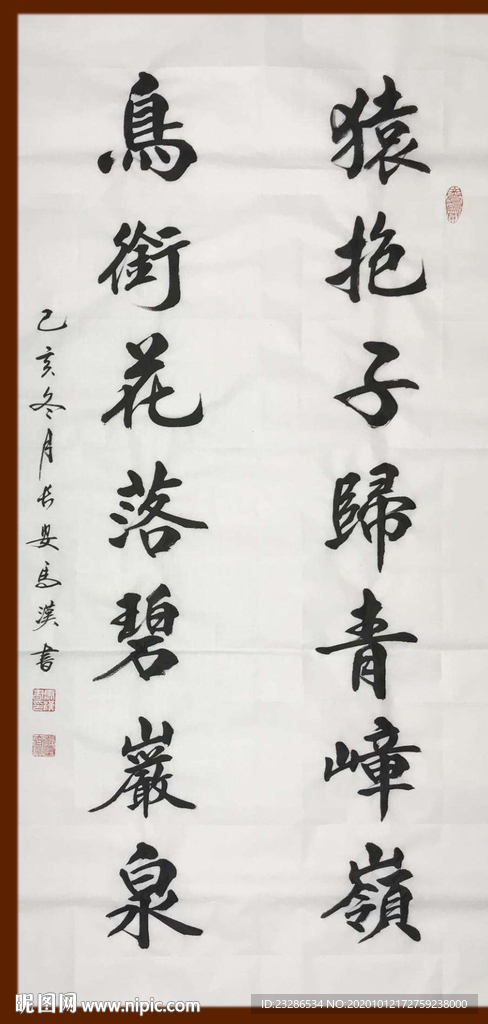 猿抱子歸青嶂嶺
鳥銜花落碧巖泉
己亥冬月長安馬漢書
昵图网 www.nipic.com
ID:23286534 NO:20201012172759238000